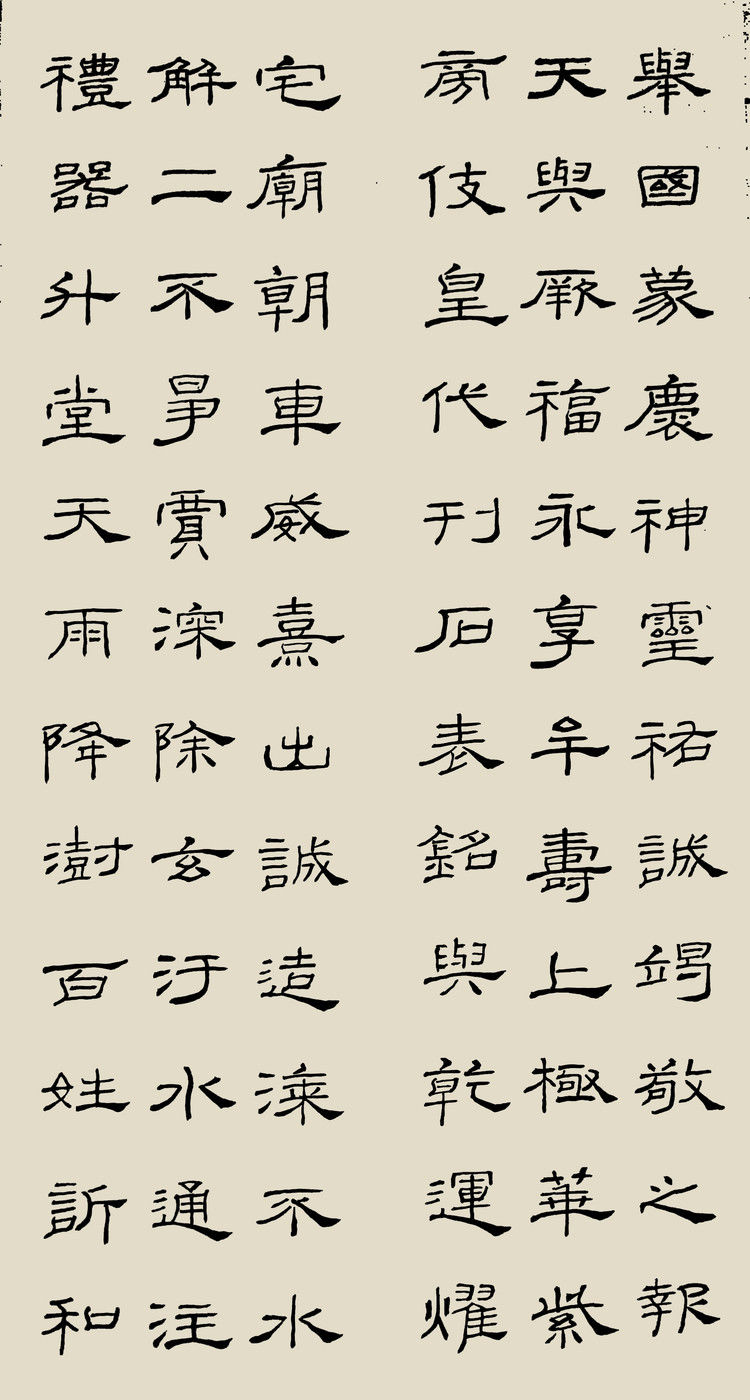 舉國蒙慶神靈祐誠竭敬之報
天與厥福永享牟壽上極華紫
旁伎皇代刊石表銘與乾運燿
宅廟朝車威熹出誠造漆不水
解二不爭賈深除玄汙水通注
禮器升堂天雨降澍百姓訢和